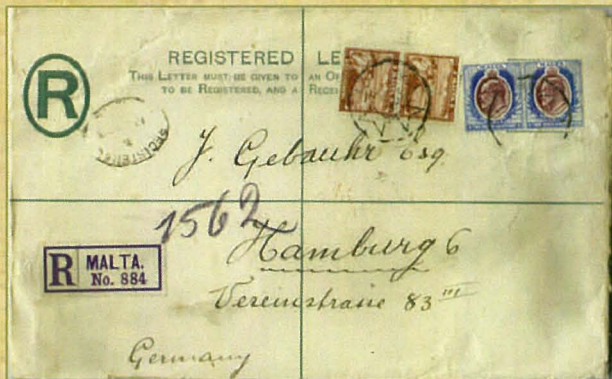 R
REGISTERED LE
THIS LETTER MUST BE GIVEN TO AN OF
TO BE REGISTERED, AND A RECEI
REGISTERED
J. Gebauhr Esq.
1562
Hamburg 6
R MALTA.
No. 884
Vereinstrasse 83 III
Germany